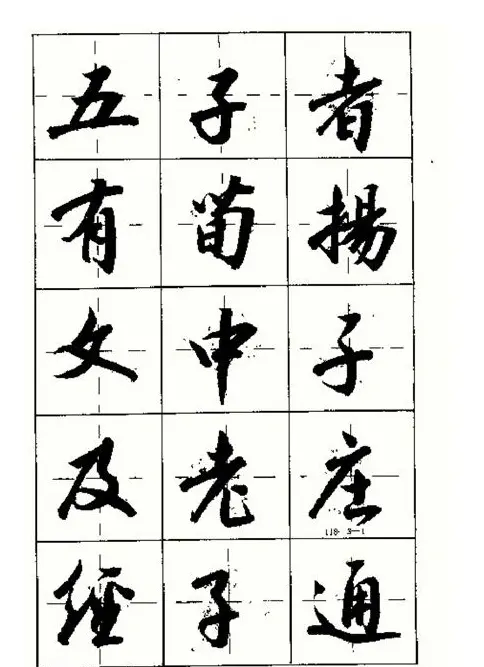 五子者
有荀揚
文中子
及老庄
118·3—1
經子通